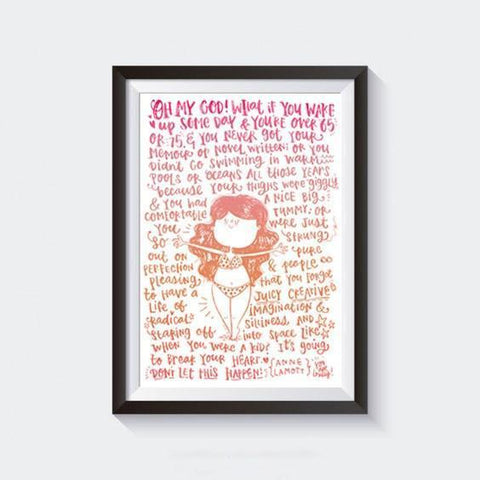 OH MY GOD! WHAT IF YOU WAKE
UP SOME DAY & YOU'RE OVER 65
OR 75, & YOU NEVER GOT YOUR
MEMOIR OR NOVEL WRITTEN; OR YOU
DIDN'T GO SWIMMING IN WARM
POOLS OR OCEANS ALL THOSE YEARS
because YOUR THIGHS WERE giggly
& YOU HAD A NICE BIG
COMFORTABLE TUMMY; OR
YOU WERE JUST
SO STRUNG
OUT ON PURE
PERFECTION & PEOPLE
PLEASING THAT YOU FORGOT
TO HAVE A JUICY CREATIVE
LIFE OF IMAGINATION &
RADICAL SILLINESS AND
STARING OFF INTO SPACE LIKE
WHEN YOU WERE A KID? IT'S GOING
TO BREAK YOUR HEART. {ANNE
DON'T LET THIS HAPPEN! LAMOTT}